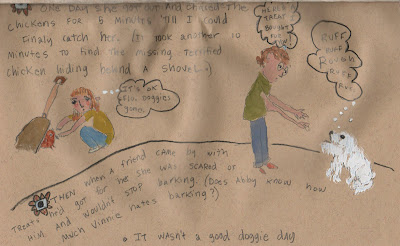 ONE DAY SHE got out and chased the
chickens for 5 minutes 'till I could
finaly catch her. (It took another 10
minutes to find the missing terrified
chicken hiding behind a shovel.)
HERE'S
TREAT
BOUGHT
FOR
YOU
RUFF
RUFF
ROUGH
RUFF
RUFF
It's ok
doggies
gone.
THEN when a friend came by with
treats he'd got for her she was scared of
him and wouldn't STOP barking. (Does Abby know how
much Vinnie hates barking?)
IT WASN'T a good doggie day